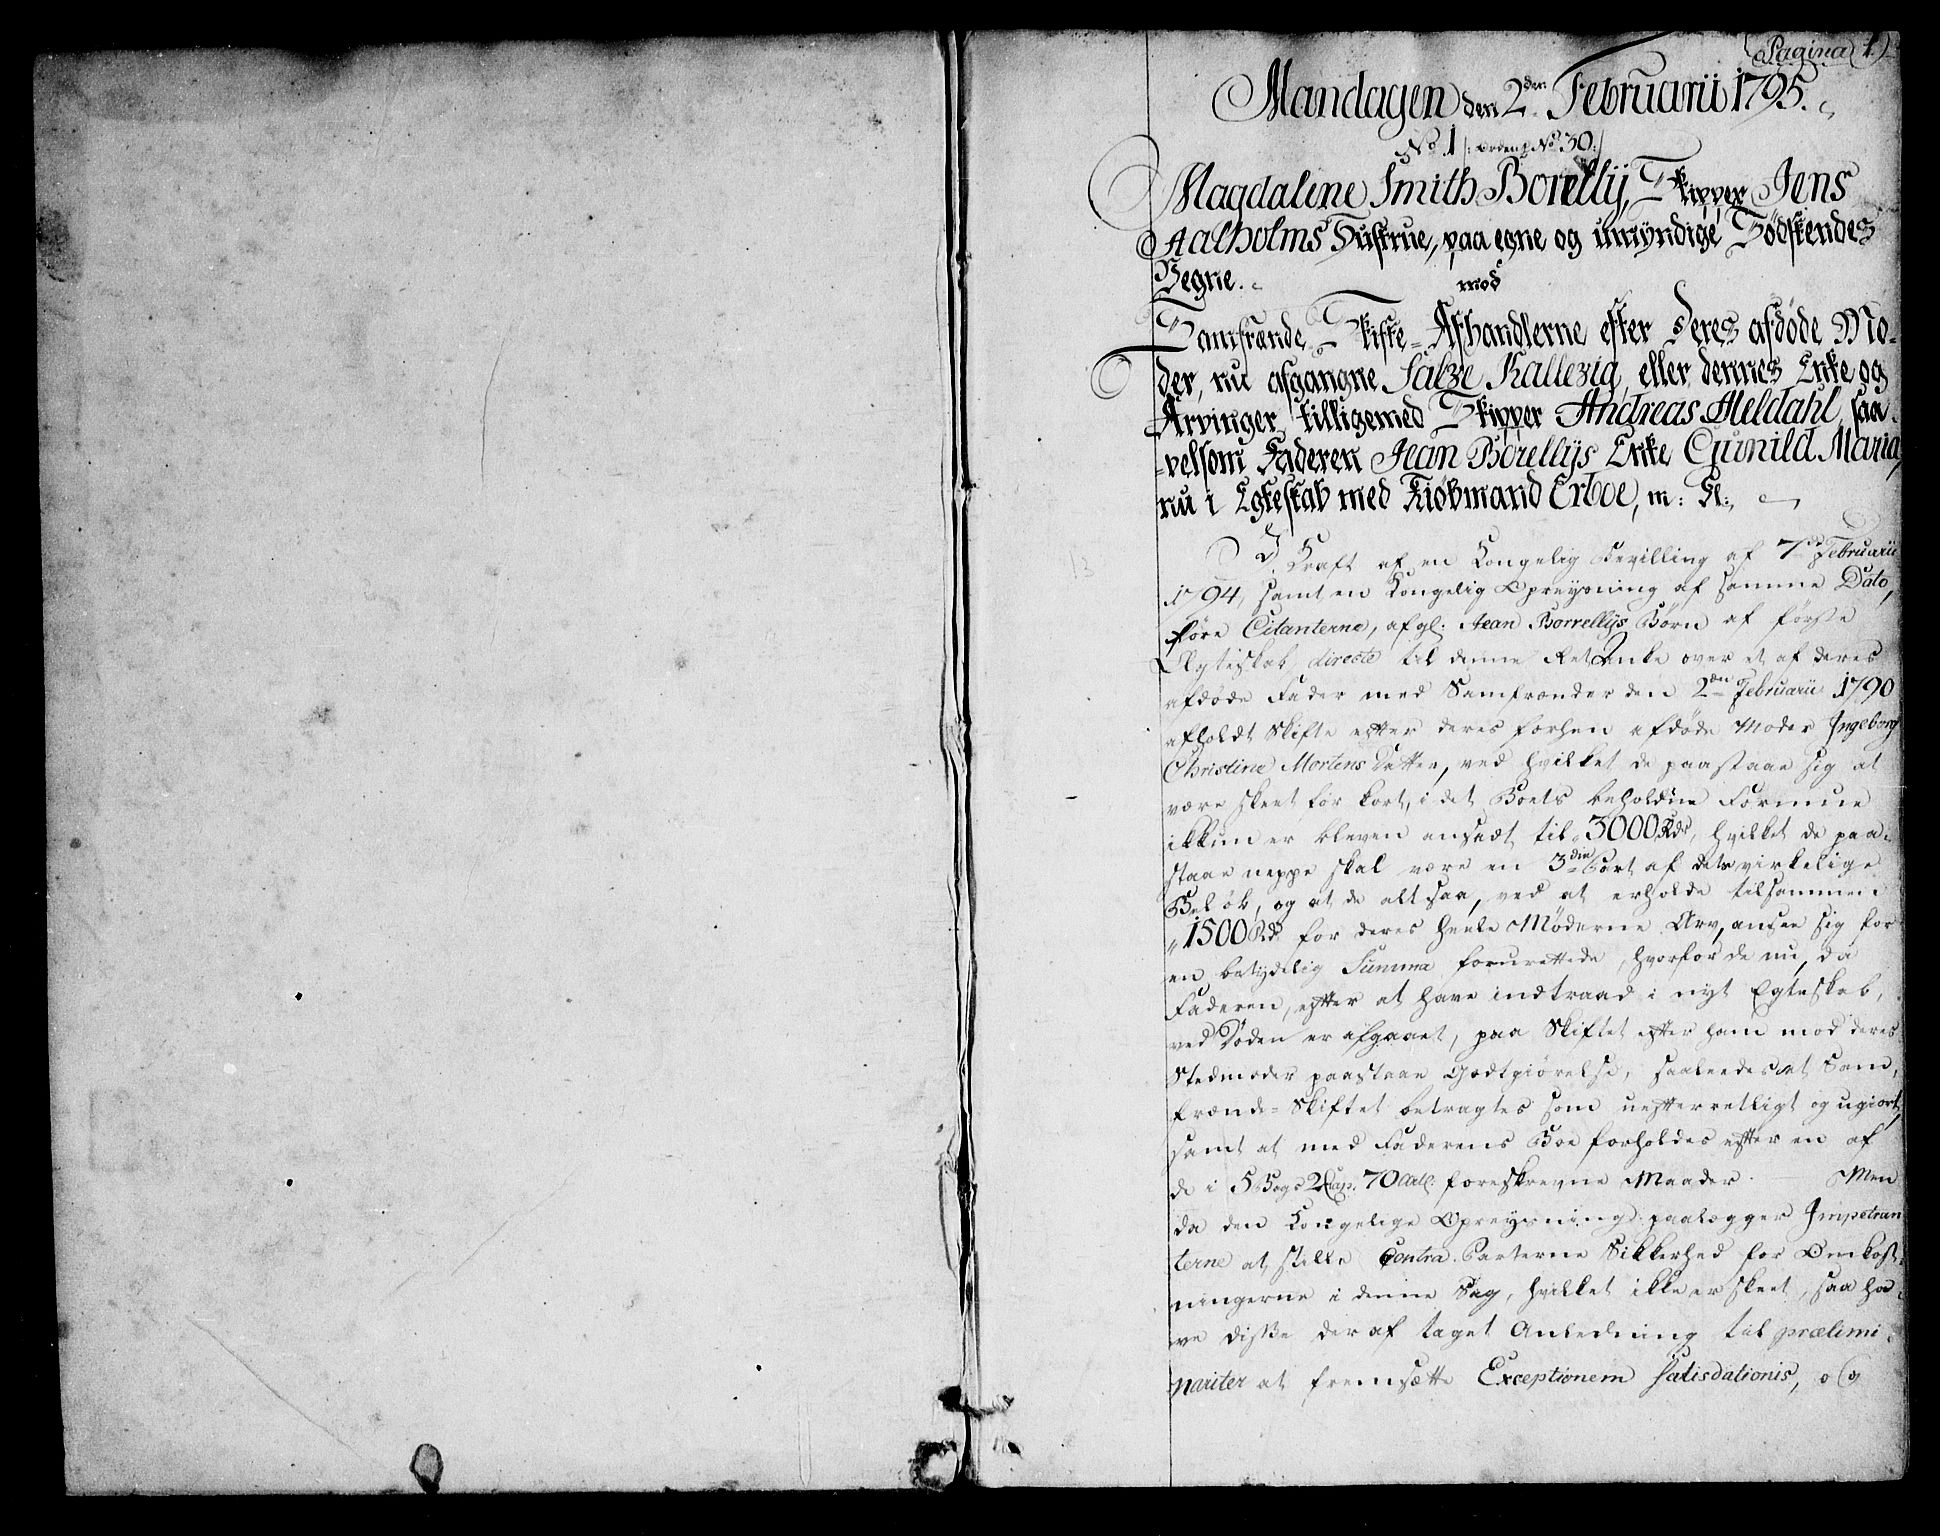 (Pagina 1.)
Mandagen den 2den Februarii 1795.
No 1 /: Ordens No 30:/
Magdalene Smith Borelly, Skipper Jens
Aalholms Hustrue, paa egne og umyndige Södskendes
Vegne.
mod
Samfrænde-Skifte-Afhandlerne efter Deres afdöde Mo-
der, nu afgangne Salve Kallevig, eller dennes Enke og
Arvinger, tilligemed Skipper Andreas Meldahl, saa-
-velsom Faderen Jean Borellys Enke Gunild Maria,
nu i Egteskab med Kiöbmand Erboe, m: Fl:,
I Kraft af en Kongelig Bevilling af 7de Februarii
1794, samt en Kongelig Opreysning af samme Dato,
före Citanterne, afgl: Jean Borrellijs Börn af förste
Ægteskab, directe til denne Ret Anke over et af deres
afdöde Fader med Samfrænder den 2den Februarii 1790
afholdt Skifte efter deres forhen afdöde Moder Ingeborg
Christine Mortens Datter, ved hvilket de paastaae sig at
være skeet for kort, i det Boets beholdne Formue
ikkun er bleven ansadt til 3000 Rdr, hvilket de paa-
staae neppe skal være en 3die Part af dets virkelige
Belöb, og at de altsaa, ved at erholde tilsammen
1500 Rdr for deres heele Möderne Arv, ansee sig for
en betydelig Summa forurettede, hvorfor de nu, da
Faderen, efter at have indtraad i nyt Egteskab,
ved Döden er afgaaet, paa Skiftet efter ham mod deres
Stedmoder paastaae Godtgiörelse, saaleedes at Sam-
frænde-Skiftet betragtes som uefterretligt og ugiort,
samt at med Faderens Boe forholdes efter en af
de i 5 Bogs 2 Cap: 70 Art: foreskrevne Maader. Men
da den Kongelige Opreysning paalægger Impetran
terne at stille Contra Parterne Sikkerhed for Omkost-
ningerne i denne Sag, hvilket ikke er skeet, saa ha-
ve disse deraf taget Anledning til prælimi-
nariter at fremsætte Exceptionem Satisdationis, og